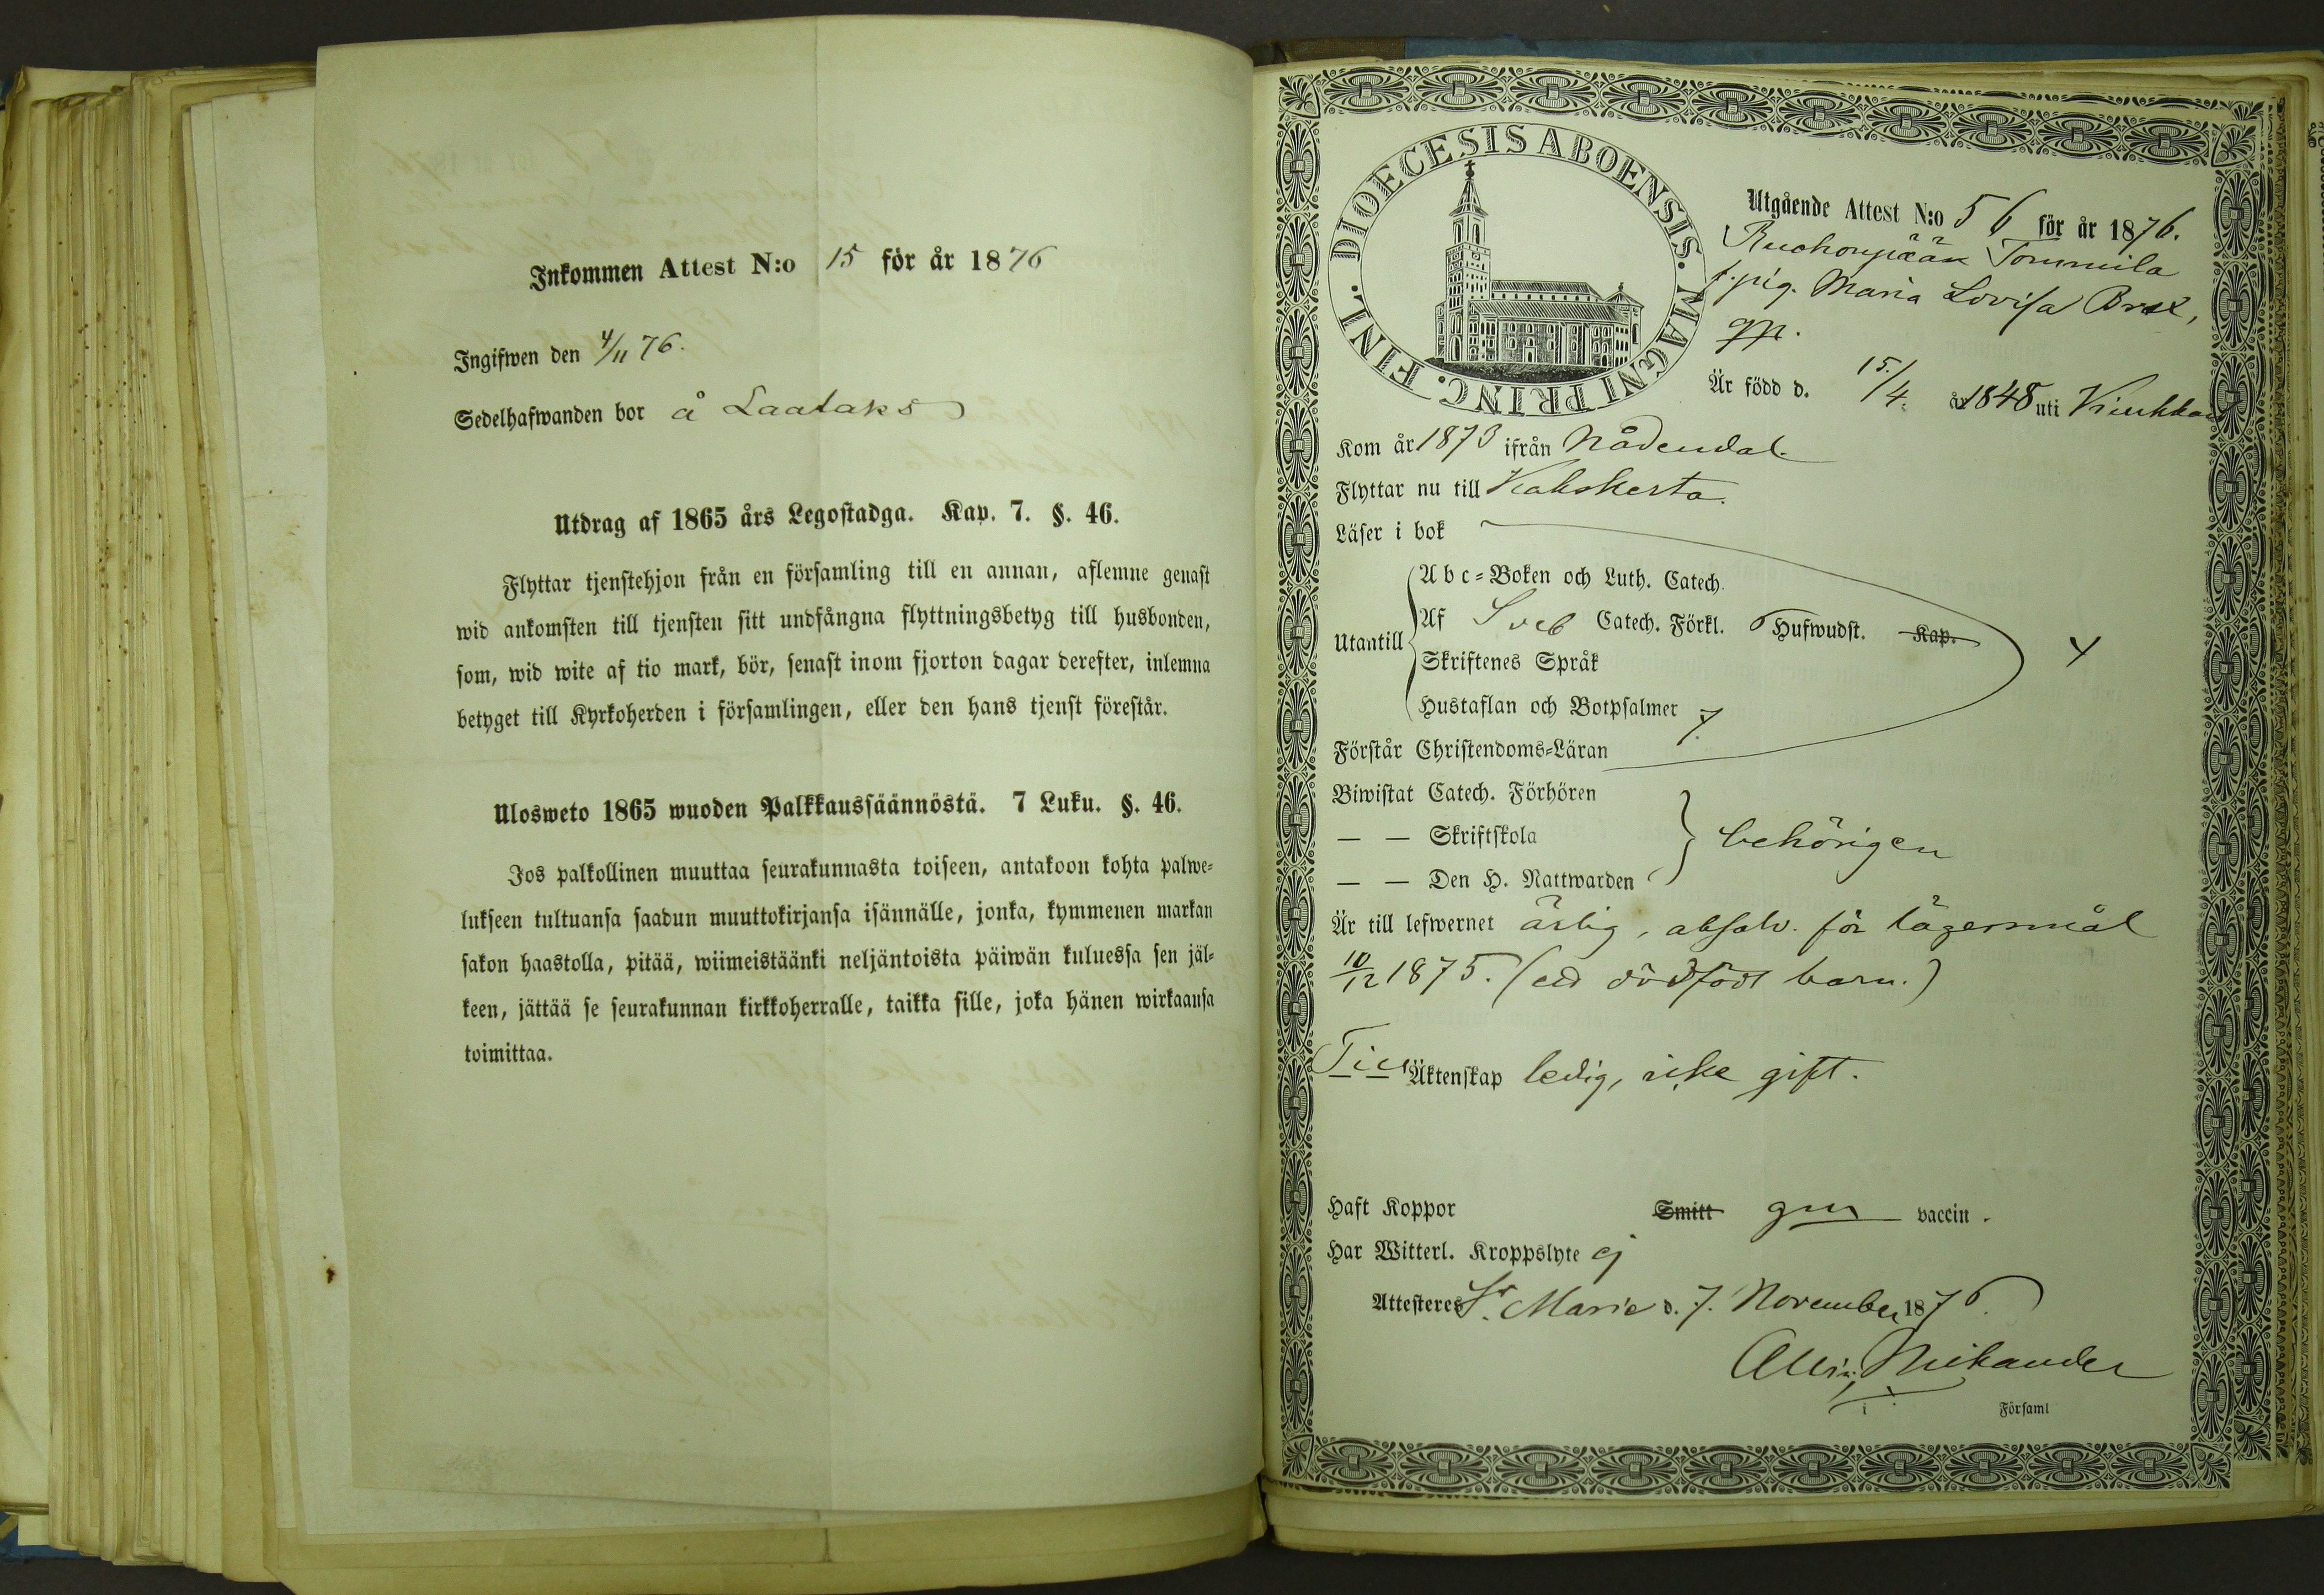 Inkommen Attest N:o 15 för år 1876
Ingifwen den 4/11 76.
Sedelhafwanden bor å Laataks
Utdrag af 1865 års Legostadga. Kap. 7. §. 46.
Flyttar tjenstehjon från en församling till en annan, aflemne genast
wid ankomsten till tjensten sitt undfångna flyttningsbetyg till husbonden,
som, wid wite af tio mark, bör, senast inom fjorton dagar derefter, inlemna
betyget till Kyrkoherden i församlingen, eller den hans tjenst förestår.
Ulosweto 1865 wuoden Palkkaussäännöstä. 7 Luku. §. 46.
Jos palkollinen muuttaa seurakunnasta toiseen, antakoon kohta palwe-
lukseen tultuansa saadun muuttokirjansa isännälle, jonka, kymmenen markan
sakon haastolla, pitää, wiimeistäänki neljäntoista päiwän kuluessa sen jäl-
keen, jättää se seurakunnan kirkkoherralle, taikka sille, joka hänen wirkaansa
toimittaa.
DIOECESIS ABOENSIS. MAGNI PRINC. FINL.
Utgående Attest N:o 56 för år 1876.
Ruohonpään Tommila
f. pig. Maria Lovisa Brax,
gp.
Är född d. 15./4. år 1848 uti Virukkala
Kom år 1873 ifrån Nådendal.
Flyttar nu till Kakskerta.
Läser i bok
Abc-Boken och Luth. Catech.
Utantill Af Sveb Catech. Förkl. 6 Hufwudst. Kap.
Skriftenes Språk
Hustaflan och Botpsalmer 7.
Förstår Christendoms-Läran
Biwistat Catech. Förhören
— — Skriftskola behörigen
— — Den H. Nattwarden
Är till lefwernet ärlig, absolv. för lägersmål
10/12 1875. (ett dödfödt barn.)
Till Äktenskap ledig, icke gift.
Haft Koppor Smitt gm vaccin.
Har Witterl. Kroppslyte ej
Attesteres St. Marie d. 7. November 1876.
Albin Nikander
i Församl